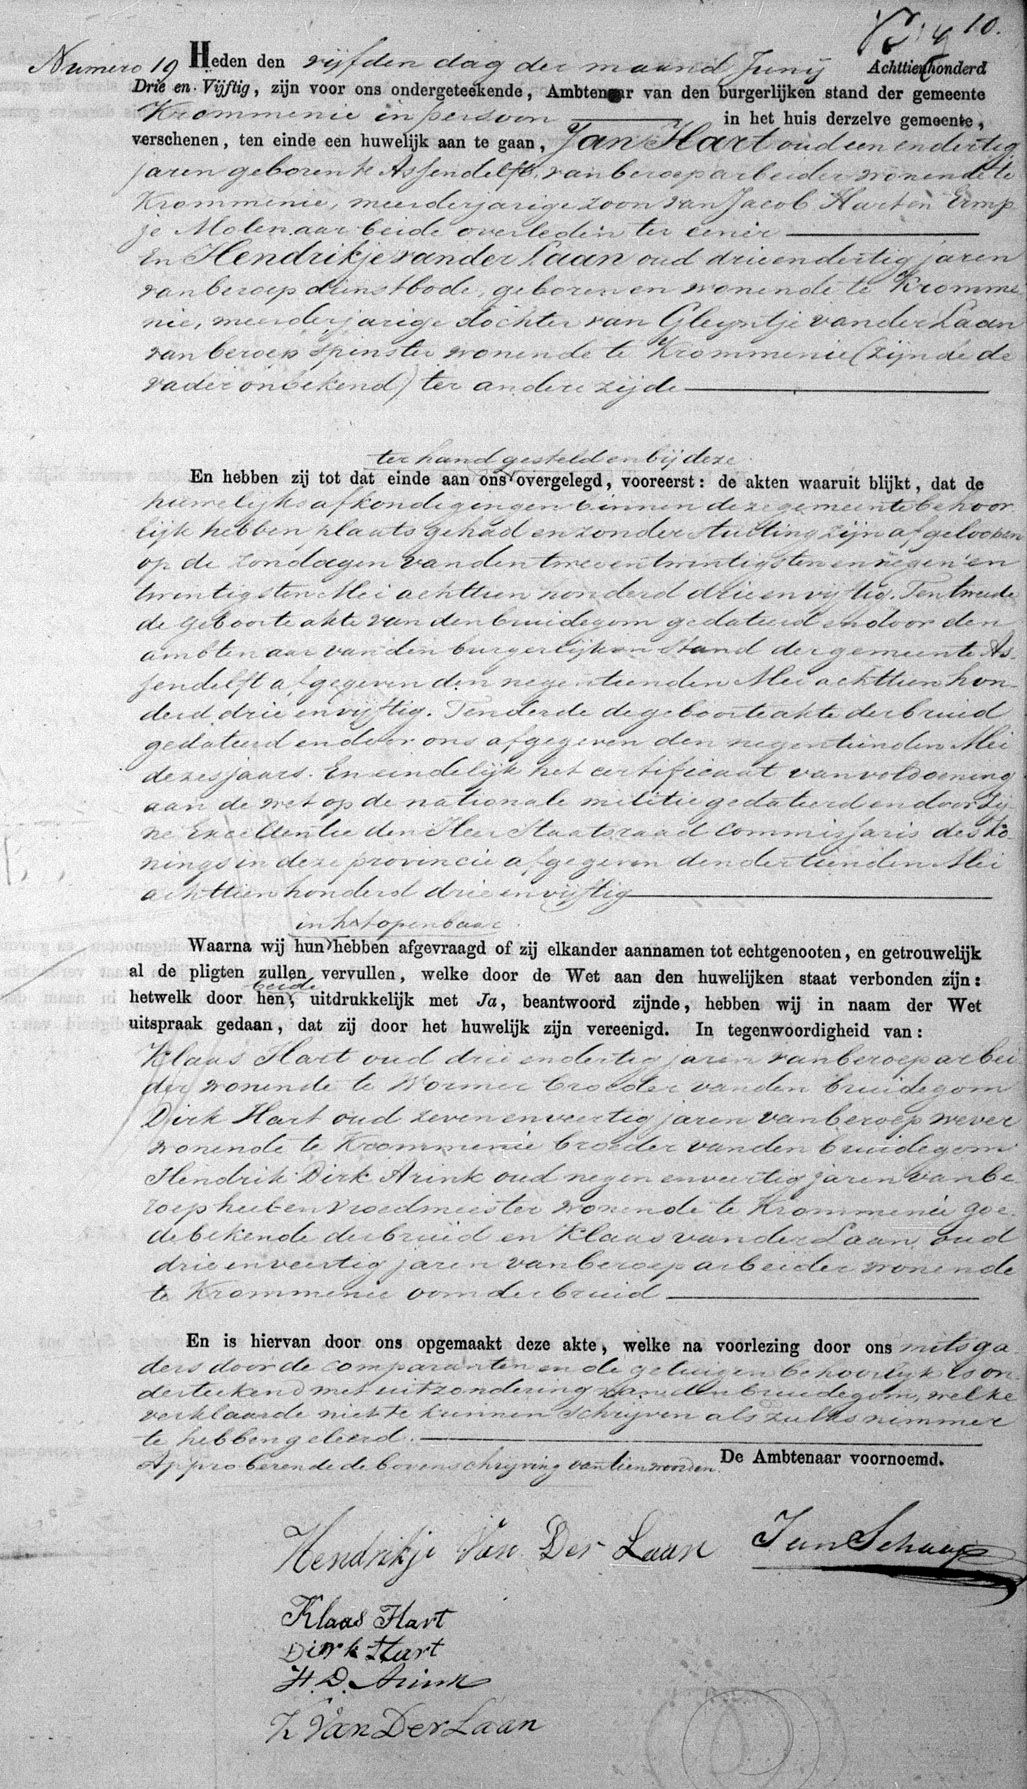 10.
Numero 19 Heden den vijfden dag der maand Junij Achttienhonderd
Drie en Vijftig, zijn voor ons ondergeteekende, Ambtenaar van den burgerlijken stand der gemeente
Krommenie in persoon in het huis derzelve gemeente,
verschenen, ten einde een huwelijk aan te gaan, Jan Hart oud een en dertig
jaren geboren te Assendelft, van beroep arbeider wonende te
Krommenie, meerderjarige zoon van Jacob Hart en Emp
je Molenaar beide overleden ter eener
En Hendrikje van der Laan oud drie en dertig jaren
van beroep dienstbode, geboren en wonende te Kromme
nie, meerderjarige dochter van Gleyntje van der Laan
van beroep spinster wonende te Krommenie (zijnde de
vader onbekend) ter andere zijde
ter hand gesteld en bij deze
En hebben zij tot dat einde aan ons overgelegd, vooreerst: de akten waaruit blijkt, dat de
huwelijks afkondigingen binnen deze gemeente behoor
lijk hebben plaats gehad en zonder stuiting zijn afgeloopen
op de zondagen van den twee en twintigsten en negen en
twintigsten Mei achttien honderd drie en vijftig. Ten tweede
de geboorte akte van den bruidegom gedateerd en door den
ambtenaar van den burgerlijken stand der gemeente As-
sendelft afgegeven den negentienden Mei achttien hon-
derd drie en vijftig. Ten derde de geboorte akte der bruid
gedateerd en door ons afgegeven den negentienden Mei
dezes jaars. En eindelijk het certificaat van voldoening
aan de wet op de nationale militie gedateerd en door Zij-
ne Excellentie den Heer Staatsraad Commissaris des Ko-
nings in deze provincie afgegeven den dertienden Mei
achttien honderd drie en vijftig
in het openbaar
Waarna wij hun hebben afgevraagd of zij elkander aannamen tot echtgenooten, en getrouwelijk
al de pligten zullen vervullen, welke door de Wet aan den huwelijken staat verbonden zijn:
beide
hetwelk door hen, uitdrukkelijk met Ja, beantwoord zijnde, hebben wij in naam der Wet
uitspraak gedaan, dat zij door het huwelijk zijn vereenigd. In tegenwoordigheid van:
Klaas Hart oud drie en dertig jaren van beroep arbei
der wonende te Wormer broeder van den bruidegom
Dirk Hart oud zeven en veertig jaren van beroep wever
wonende te Krommenie broeder van den bruidegom
Hendrik Dirk Arink oud negen en veertig jaren van be-
roep heel en vroedmeester wonende te Krommenie goe-
de bekende der bruid en Klaas van der Laan oud
drie en veertig jaren van beroep arbeider wonende
te Krommenie oom der bruid
En is hiervan door ons opgemaakt deze akte, welke na voorlezing door ons mitsga-
ders door de comparanten en de getuigen behoorlijk is on-
derteekend met uitzondering van den bruidegom, welke
verklaarde niet te kunnen schrijven als zulks nimmer
te hebben geleerd.
Approberende de bovenschrijving van tien woorden. De Ambtenaar voornoemd.
Hendrikje Van Der Laan Jan Schaap
Klaas Hart
Dirk Hart
H. D. Arink
K Van Der Laan